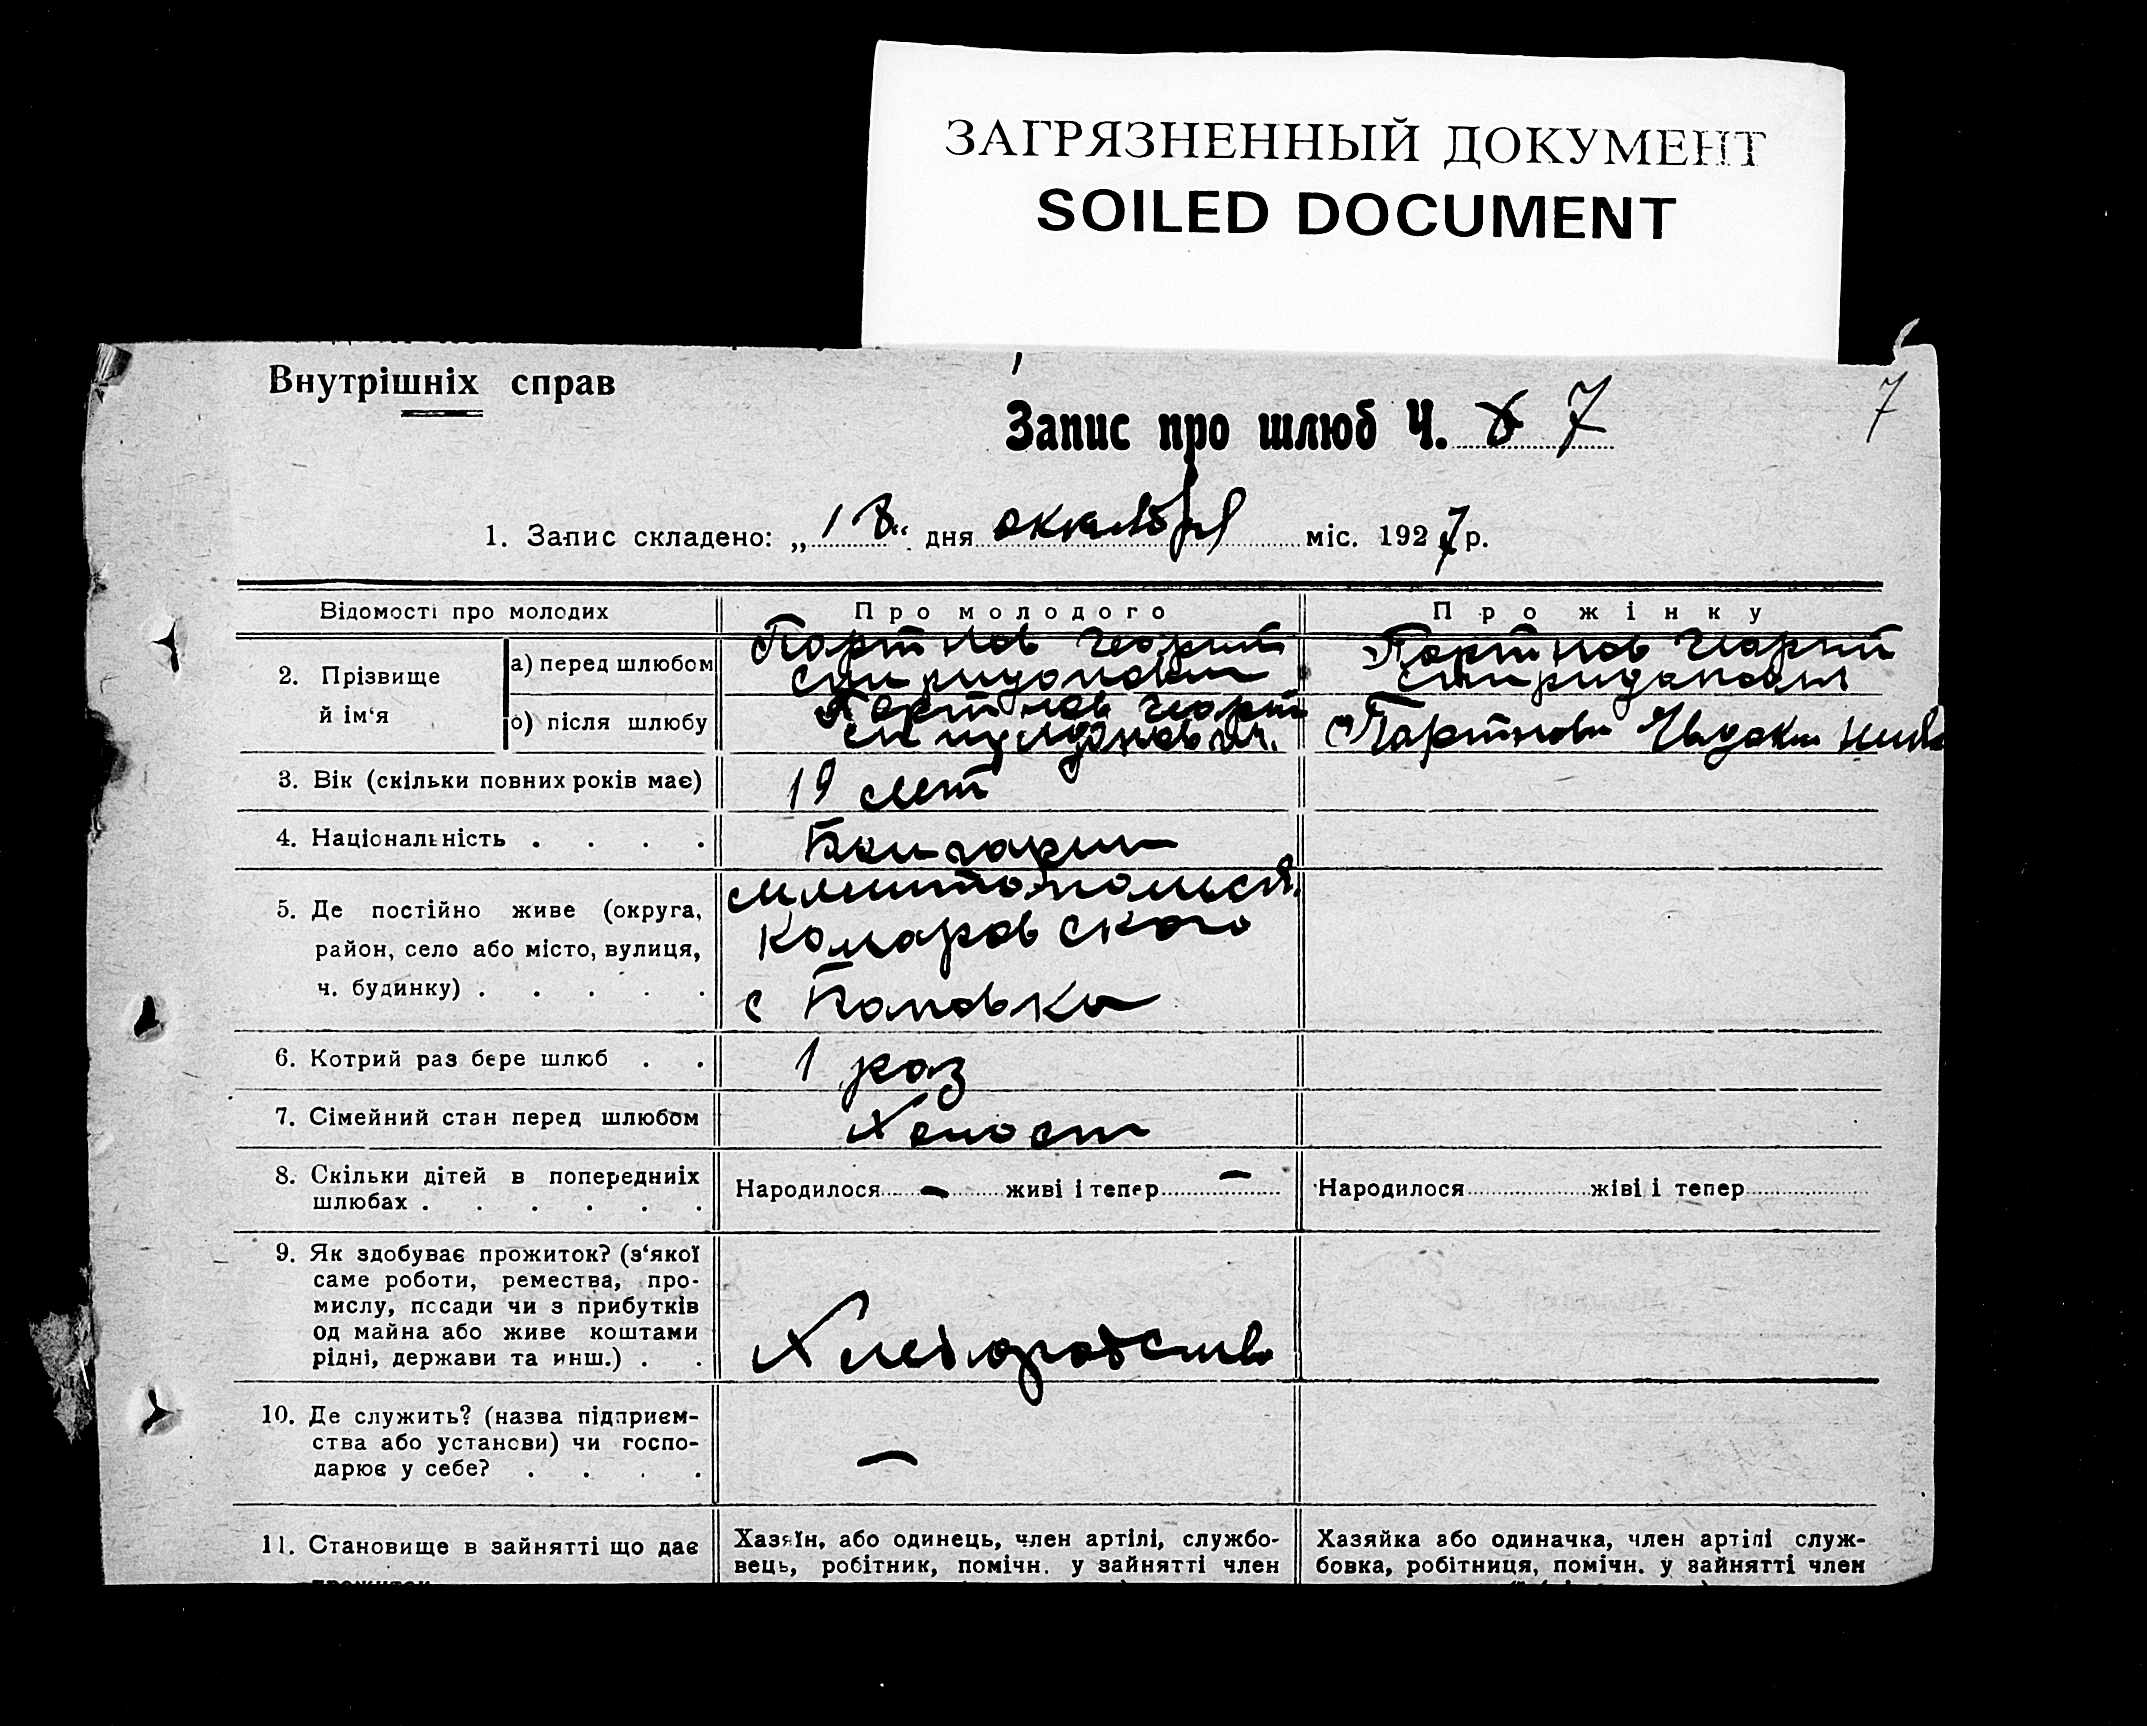 ЗАГРЯЗНЕННЫЙ ДОКУМЕНТ
SOILED DOCUMENT
Внутрішніх справ
7
Запис про шлюб Ч. 7
1. Запис складено: „18“ дня октября міс. 1927 р.
Відомості про молодих
Про молодого
Про жінку
2. Прізвище й ім‘я
а) перед шлюбом
Портнов Георгий
Спиридонович
Портнов Георгий
Спиридонович
б) після шлюбу
Портнов Георгий
Спиридонович.
Портнова Евдокия
3. Вік (скільки повних років має)
19 лет
4. Національність . . . .
Болгарин
5. Де постійно живе (округа,
район, село або місто, вулиця,
ч. будинку) . . . . .
Комаровского
с
6. Котрий раз бере шлюб . .
1 раз
7. Сімейний стан перед шлюбом
Холост
8. Скільки дітей в попередниіх
шлюбах . . . . . .
Народилося — живі і тепер —
Народилося жіві і тепер
9. Як здобуває прожиток? (з‘якої
саме роботи, ремества, про-
мислу, посади чи з прибутків
од майна або живе коштами
рідні, держави та инш.) . .
10. Де служить? (назва підприєм-
ства або установи) чи госпо-
дарює у себе? . . . .
—
11. Становище в зайнятті що дає
прожиток
Хазяїн, або одинець, член артілі, службо-
вець, робітник, помічн. у зайнятті член
Хазяйка або одиначка, член артілі служ-
бовка, робітниця, помічн. у зайнятті член